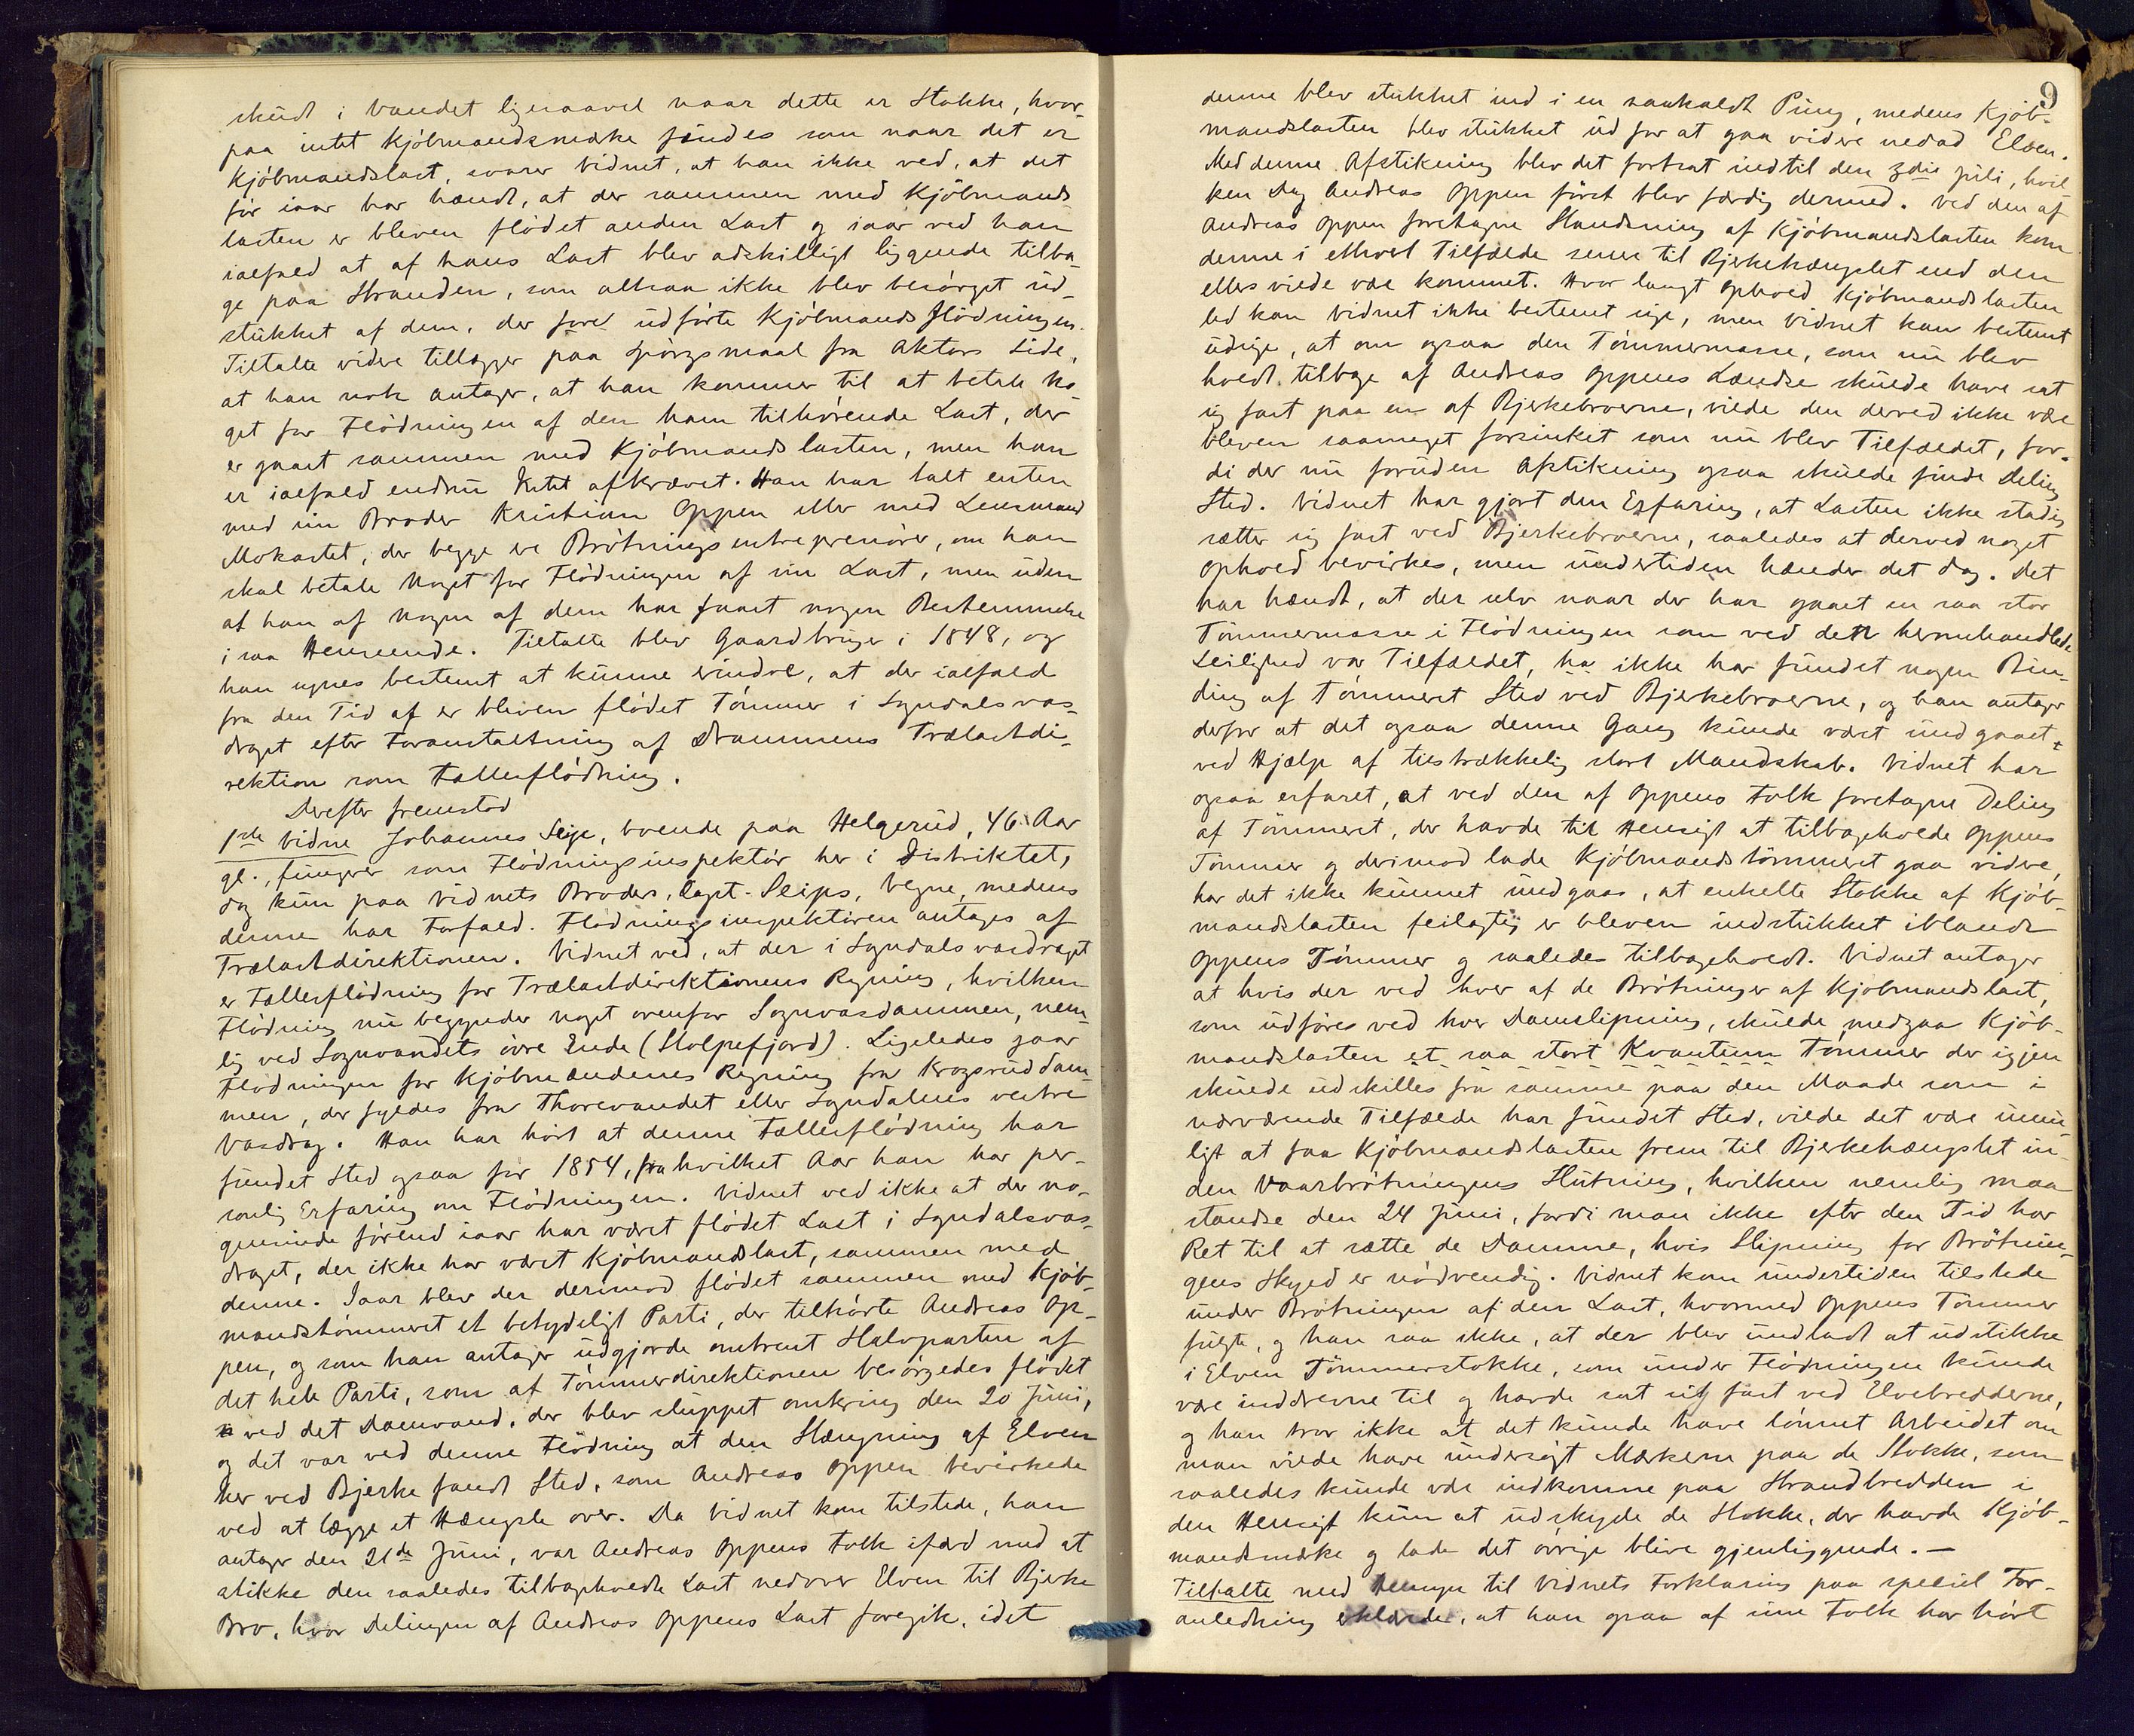 skudt i Vandet ligesaavel naar dette er Stokke, hvor-
paa intet Kjöbmandsmærke findes som naar det er
Kjöbmandslast, svarer Vidnet, at han ikke ved, at det
för iaar har hændt, at der sammen med Kjöbmands
lasten er bleven flödet anden Last og iaar ved han
ialfald at af hans Last blev adskilligt liggende tilba-
ge paa Stranden, som altsaa ikke blev besörget ud-
stukket af dem, der forœ udförte Kjöbmandsflödningen.
Tiltalte videre tillægger paa Spörgsmaal fra Aktors Side,
at han nok antager, at han kommer til at betale No-
get for Flödningen af den ham tilhörende Last, der
er gaaet sammen med Kjöbmandslasten, men han
er ialfald endnu Intet afkrævet. Han har talt enten
med sin Broder Kristian Oppen eller med Lensmand
Mokastet, der begge ere Brötningsentreprenörer, om han
skal betale Noget for Flödningen af sin Last, men uden
at han af Nogen af dem har faaet nogen Bestemmelse
i saa Henseende. Tiltalte blev Gaardbruger i 1848, og
han synes bestemt at kunne erindre, at der ialfald
fra den Tid af er bleven flödet Tömmer i Lyndalsvas-
draget efter Foranstaltning af Drammens Trælastdi-
rektion som Fællesflödning.
Derefter fremstod
1ste Vidne Johannes Seip, boende paa Helgerud, 46 Aar
gl., fungerer som Flödningsinspektör her i Distriktet,
dog kun paa Vidnets Broders, Capt. Seips, Vegne, medens
denne har Forfald. Flödningsinspektören antages af
Trælastdirektionen. Vidnet ved, at der i Lyndalsvasdraget
er Fællesflödning for Trælastdirektionens Regning, hvilken
Flödning nu begynder noget ovenfor Sognvasdammen, nem-
lig ved Sognvandets övre Ende (Stolpefjord). Ligeledes gaar
Flödningen for Kjöbmændenes Regning fra Krogsruddam-
men, der fyldes fra Thorevandet eller Lyndalens vestre
Vasdrag. Han har hört at denne Fællesflödning har
fundet Sted ogsaa för 1854, fra hvilket Aar han har per-
sonlig Erfaring om Flödningen. Vidnet ved ikke at der no-
gensinde förend iaar har været flödet Last i Lyndalsvas-
draget, der ikke har været Kjöbmandslast, sammen med
denne. Iaar blev der derimod flödet sammen med Kjöb-
mandstömmeret et betydeligt Parti, der tilhörte Andreas Op-
pen, og som han antager udgjorde omtrent Halvparten af
det hele Parti, som af Tömmerdirektionen besörgedes flödet
ved det Damvand, der blev sluppet omkring den 20 Juni,
og det var ved denne Flödning at den Stængning af Elven
her ved Bjerke fandt Sted, som Andreas Oppen bevirkede
ved at lægge et Hængsle over. Da Vidnet kom tilstede, han
antager den 21de Juni, var Andreas Oppens Folk ifærd med at
stikke den saaledes tilbageholdte Last nedover Elven til Bjerke
Bro, hvor Delingen af Andreas Oppens Last foregik, idet
9
denne blev stukket ind i en saakaldt Pung, medens Kjöb-
mandslasten blev stukket ud for at gaa videre nedad Elven.
Med denne Afstikning blev det fortsat indtil den 3die Juli, hvil-
ken Dag Andreas Oppen först blev færdig dermed. Ved den af
Andreas Oppen foretagne Standsning af Kjöbmandslasten kom
denne i ethvert Tilfælde senere til Bjerkehængslet end den
ellers vilde være kommet. Hvor langt Ophold Kjöbmandslasten
led kan Vidnet ikke bestemt sige, men Vidnet kan bestemt
udsige, at om ogsaa den Tömmermasse, som nu blev
holdt tilbage af Andreas Oppens Lændse skulde have sat
sig fast paa en af Bjerkebroerne, vilde den derved ikke være
bleven saameget forsinket som nu blev Tilfældet, for-
di der nu foruden Afstikning ogsaa skulde finde Deling
Sted. Vidnet har gjort den Erfaring, at Lasten ikke stadig
sætter sig fast ved Bjerkebroerne, saaledes at derved noget
Ophold bevirkes, men undertiden hænder det dog. Det
har hændt, at der selv naar der har gaaet en saa stor
Tömmermasse i Flödningen som ved den heromhandlede
Leilighed var Tilfældet, ha ikke har fundet nogen Bin-
ding af Tömmeret Sted ved Bjerkebroerne, og han antager
derfor at det ogsaa denne Gang kunde været undgaaet
ved Hjælp af tilstrækkelig stort Mandskab. Vidnet har
ogsaa erfaret, at ved den af Oppens Folk foretagne Deling
af Tömmeret, der havde til Hensigt at tilbageholde Oppens
Tömmer og derimod lade Kjöbmandstömmeret gaa videre,
har det ikke kunnet undgaaes, at enkelte Stokke af Kjöb-
mandslasten feilagtig er bleven indstukket iblandt
Oppens Tömmer og saaledes tilbageholdt. Vidnet antager
at hvis der ved hver af de Brötninger af Kjöbmandslast,
som udföres ved hver Damslipning, skulde medgaa Kjöb-
mandslasten et saa stort Kvantum Tömmer der igjen
skulde udskilles fra samme paa den Maade som i
nærværende Tilfælde har fundet Sted, vilde det være umu-
ligt at faa Kjöbmandslasten frem til Bjerkehængslet in-
den Vaarbrötningens Slutning, hvilken nemlig maa
standse den 24 Juni, fordi man ikke efter den Tid har
Ret til at sætte de Damme, hvis Slipning for Brötnin-
gens Skyld er nödvendig. Vidnet kom undertiden tilstede
under Brötningen af den Last, hvormed Oppens Tömmer
fulgte, og han saa ikke, at der blev undladt at udstikke
i Elven Tömmerstokke, som under Flödningen kunde
være inddrevne til og havde sat sig fast ved Elvebredderne,
og han tror ikke at det kunde have lönnet Arbeidet om
man vilde have undersögt Mærkerne paa de Stokke, som
saaledes kunde være indkomne paa Strandbredden i
den Hensigt kun at udskyde de Stokke, der havde Kjöb-
mandsmærke og lade det övrige blive gjenliggende. —
Tiltalte med Hensyn til Vidnets Forklaring paa speciel For-
anledning erklærede, at han ogsaa af sine Folk har hört